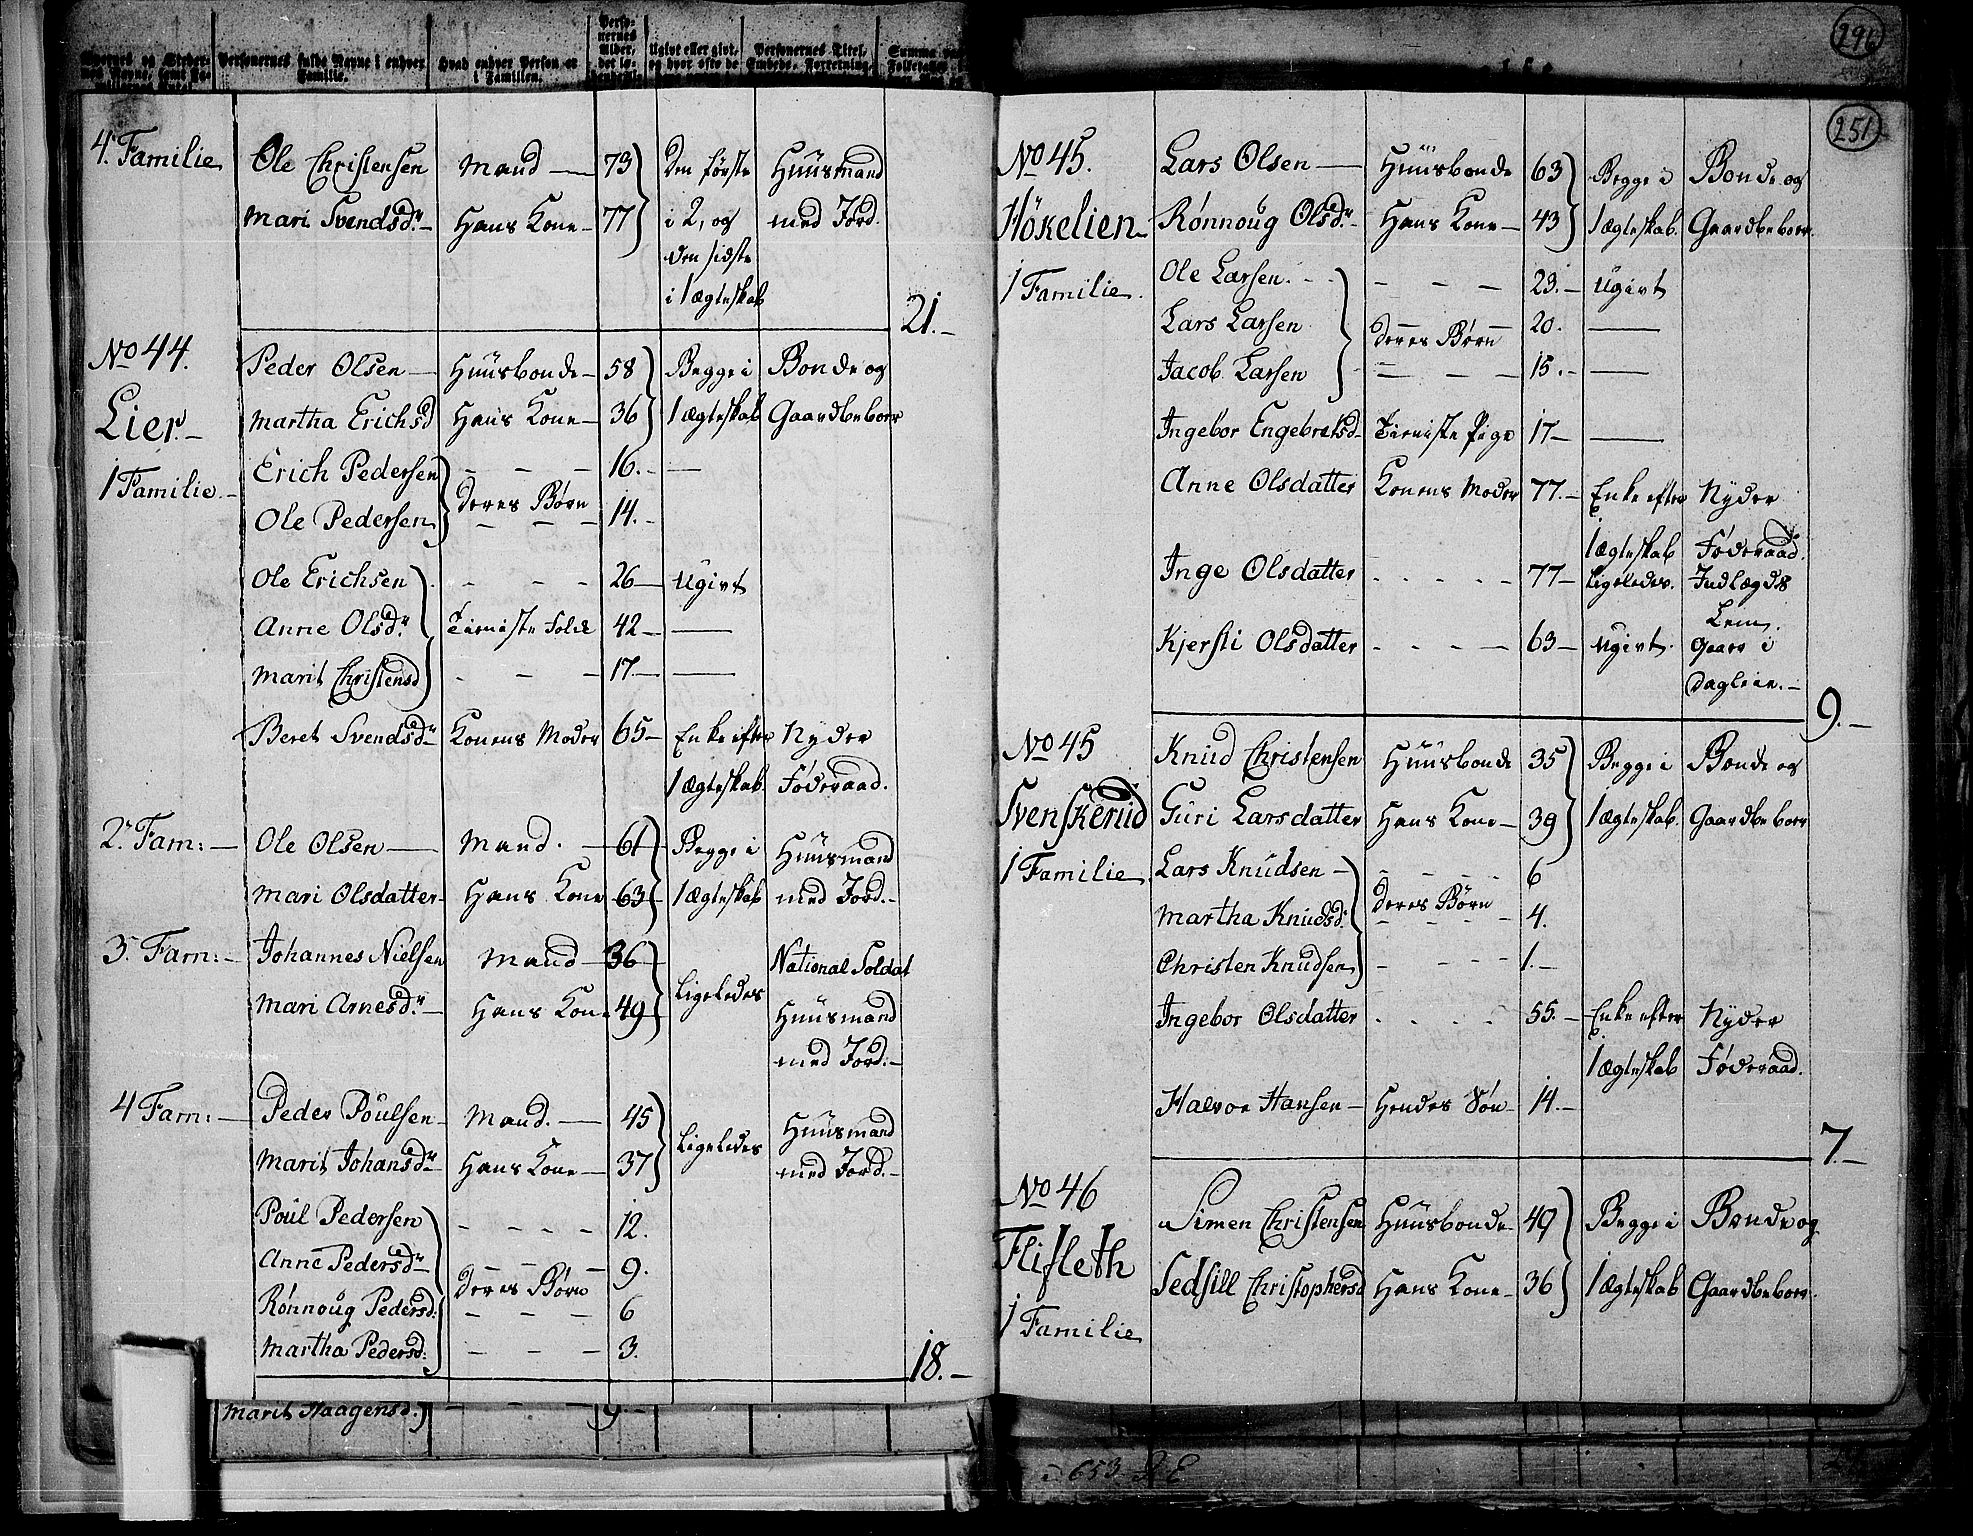 Personernes fulde Navne i enhver Familie.
Hvad enhver Person er i Familien.
Ugivt eller givt,
Personernes Titel,
Embede, Forretning,
4. Familie Ole Christensen Mand — 73 Den første Huusmand
Mari Svendsdr. — Hans Kone — 77 i 2, og med Jord.
den sidste
i 1 Ægteskab
21. —
No 44. Peder Olsen — Huusbonde — 58 Begge i Bonde og
Lier. — Martha Erichsd Hans Kone — 36 1 Ægteskab Gaardbeboer
1 Familie. — Erich Pedersen — — — 16. — —
Deres Børn
Ole Pedersen — — — 14. —
Ole Erichsen - - - 26 — Ugivt
Anne Olsdr. Tieniste Folk 42 — —
Marit Christensd - - - 17. — —
Beret Svendsdr. Konens Moder 65 — Enke efter Nyder
1 Ægteskab. Føderaad.
2. Fam: — Ole Olsen — Mand. — 61 Begge i Huusmand
Mari Olsdatter — Hans Kone 63 1 Ægteskab med Jord. —
3. Fam: — Johannes Nielsen Mand — 36 Ligeledes National Soldat
Mari Arnesdr. — Hans Kone 49 Huusmand
med Jord. —
4 Fam: — Peder Poulsen — Mand. — 45 Ligeledes Huusmand
Marit Johansdr. Hans Kone — 37 med Jord. —
Poul Pedersen - - - - 12.
Anne Pedersdr. — — — 9.
Deres Børn
Rønnoug Pedersd: — — — 6
Martha Pedersd: — — — 3.
18. —
Marit Haagensd. — — 9
296
251
No 45. Lars Olsen — Huusbonde 63 Begge i Bonde og
Hökelien — Rønnoug Olsdr. — Hans Kone — 43 1 Ægteskab. Gaardbeboer.
1 Familie. Ole Larsen. - - — — — 23. — Ugivt
Lars Larsen Deres Børn 20. —
Jacob Larsen — — — 15. — —
Ingebor Engebretsd — Tieniste Pige 17 — —
Anne Olsdatter Konens Moder 77. — Enke efter Nyder
1 Ægteskab Føderaad.
Inge Olsdatter - - - - - 77 — Ligeledes. Indlægds
Lem.
Kjersti Olsdatter - - - - 63 — Ugivt. Gaaer i
Dagleie. —
9. —
No 45 Knud Christensen Huusbonde 35 Begge i Bonde og
Svenskerud Guri Larsdatter Hans Kone — 39 1 Ægteskab. Gaardbeboer
1 Familie Lars Knudsen — - - - - 6
Deres Børn
Martha Knudsd: - - - - 4.
Christen Knudsen - - - - 1. —
Ingebor Olsdatter - - - - 55. — Enke efter Nyder
1 Ægteskab Føderaad.
Halvor Hansen — Hendes Søn — 14. —
7. —
No 46 Simen Christensen Huusbonde — 49 Begge i Bonde og
Flifleth Sedsill Christophersd Hans Kone — 36 1 Ægteskab Gaardbeboer.
1 Familie
653